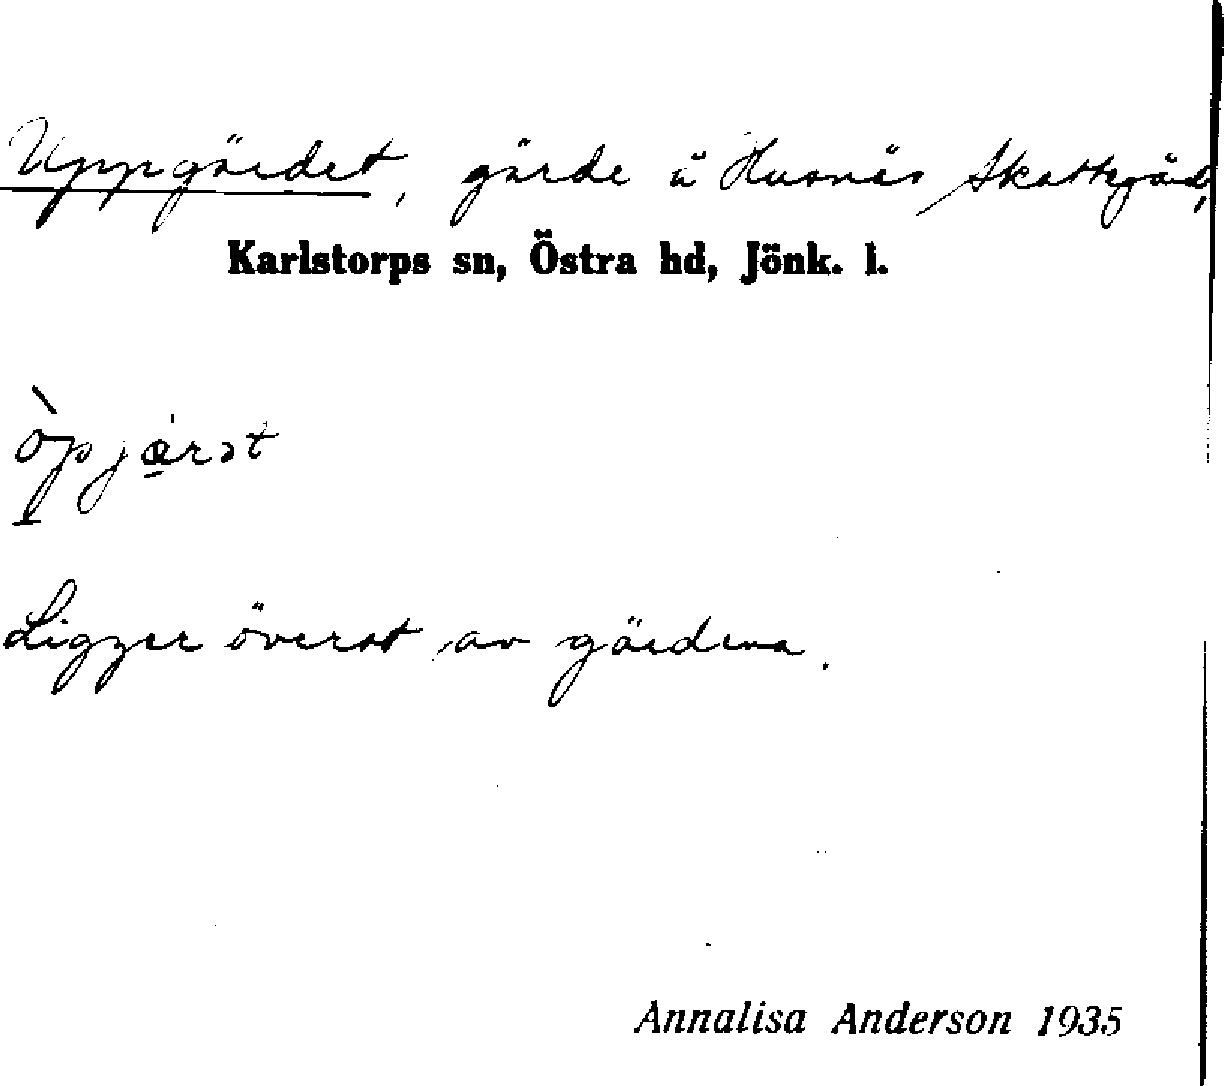 Uppgärdet, gärde å Husnäs Skattegård,
Karlstorps sn, Östra hd, Jönk. l.
òpjæ̠rət
Ligger överst av gärdena.
Annalisa Anderson 1935